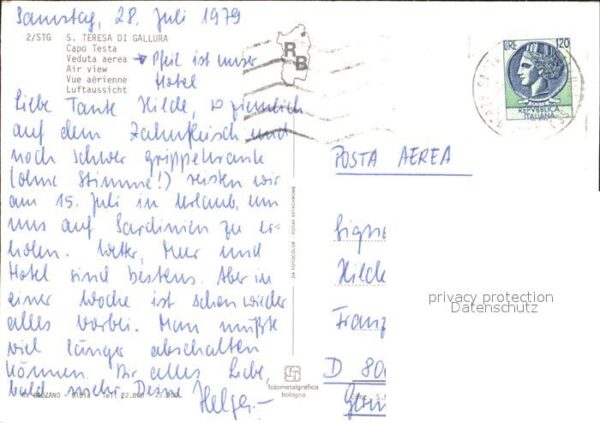 Samstag, 28. Juli 1979
2/STG S. TERESA DI GALLURA
Capo Testa
Veduta aerea → Pfeil ist unser
Air view Hotel
Vue aérienne
Luftaussicht
Liebe Tante Hilde, so ziemlich
auf dem Zahnfleisch und
noch schwer grippekrank
(ohne Stimme!) reisten wir
am 15. Juli in Urlaub, um
uns auf Sardinien zu er-
holen. Wetter, Meer und
Hotel sind bestens. Aber in
einer Woche ist schon wieder
alles vorbei. Man müßte
viel länger abschalten
können. Dir alles Liebe,
bald mehr. Deine Helga.-
RB
LIRE 120
REPVBBLICA
ITALIANA
POSTA AEREA
Hilde
Franz
D 80
privacy protection
Datenschutz
fotometalgrafica
bologna